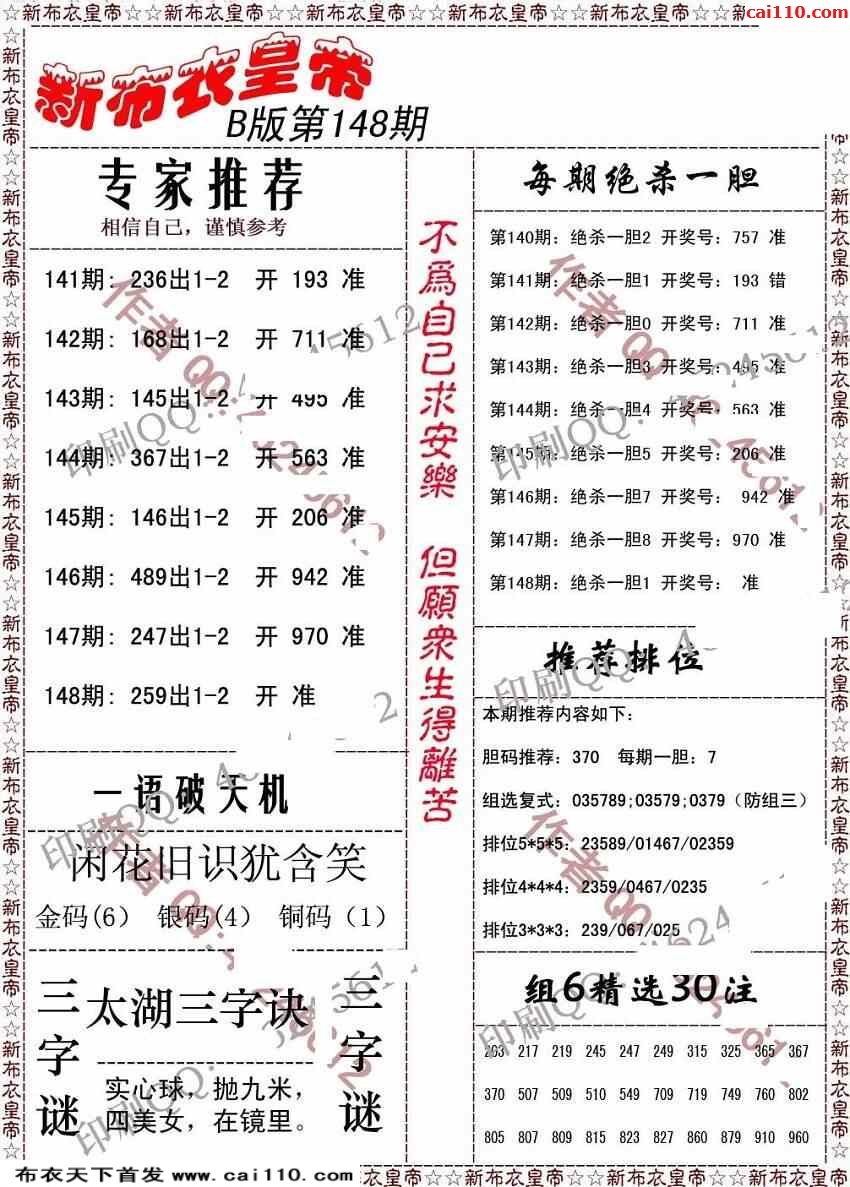 ☆☆新布衣皇帝☆☆新布衣皇帝☆☆新布衣皇帝☆☆新布衣皇帝☆☆新布衣皇帝☆☆新
cai110.com
新布衣皇帝
B版第148期
专家推荐
相信自己，谨慎参考
141期: 236出1-2 开 193 准
142期: 168出1-2 开 711 准
143期: 145出1-2 开 495 准
144期: 367出1-2 开 563 准
145期: 146出1-2 开 206 准
146期: 489出1-2 开 942 准
147期: 247出1-2 开 970 准
148期: 259出1-2 开 准
一语破天机
闲花旧识犹含笑
金码(6) 银码(4) 铜码（1）
三字谜
太湖三字诀
实心球，抛九米，
四美女，在镜里。
三字谜
不爲自己求安樂
但願衆生得離苦
每期绝杀一胆
第140期: 绝杀一胆2 开奖号: 757 准
第141期: 绝杀一胆1 开奖号: 193 错
第142期: 绝杀一胆0 开奖号: 711 准
第143期: 绝杀一胆3 开奖号: 495 准
第144期: 绝杀一胆4 开奖号: 563 准
第145期: 绝杀一胆5 开奖号: 206 准
第146期: 绝杀一胆7 开奖号: 942 准
第147期: 绝杀一胆8 开奖号: 970 准
第148期: 绝杀一胆1 开奖号: 准
推荐排位
本期推荐内容如下:
胆码推荐: 370 每期一胆: 7
组选复式: 035789;03579;0379（防组三）
排位5*5*5: 23589/01467/02359
排位4*4*4: 2359/0467/0235
排位3*3*3: 239/067/025
组6精选30注
203 217 219 245 247 249 315 325 365 367
370 507 509 510 549 709 719 749 760 802
805 807 809 815 823 827 860 879 910 960
布衣天下首发 www.cai110.com
衣皇帝☆☆新布衣皇帝☆☆新布衣皇帝☆☆新布衣皇帝☆☆